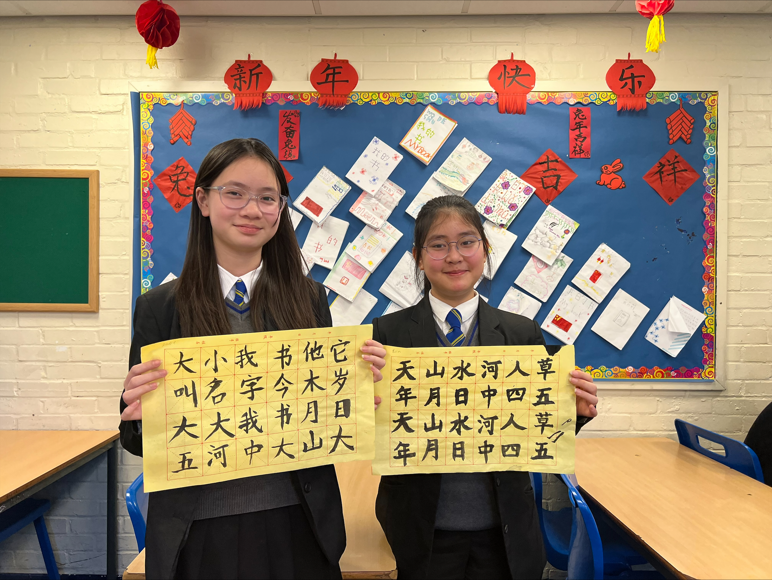 新年快乐
兔
吉祥
我的书
大小我书他它
叫名字今木岁
大大我书月日
五河中大山大
天山水河人草
年月日中四五
天山水河人草
年月日中四五